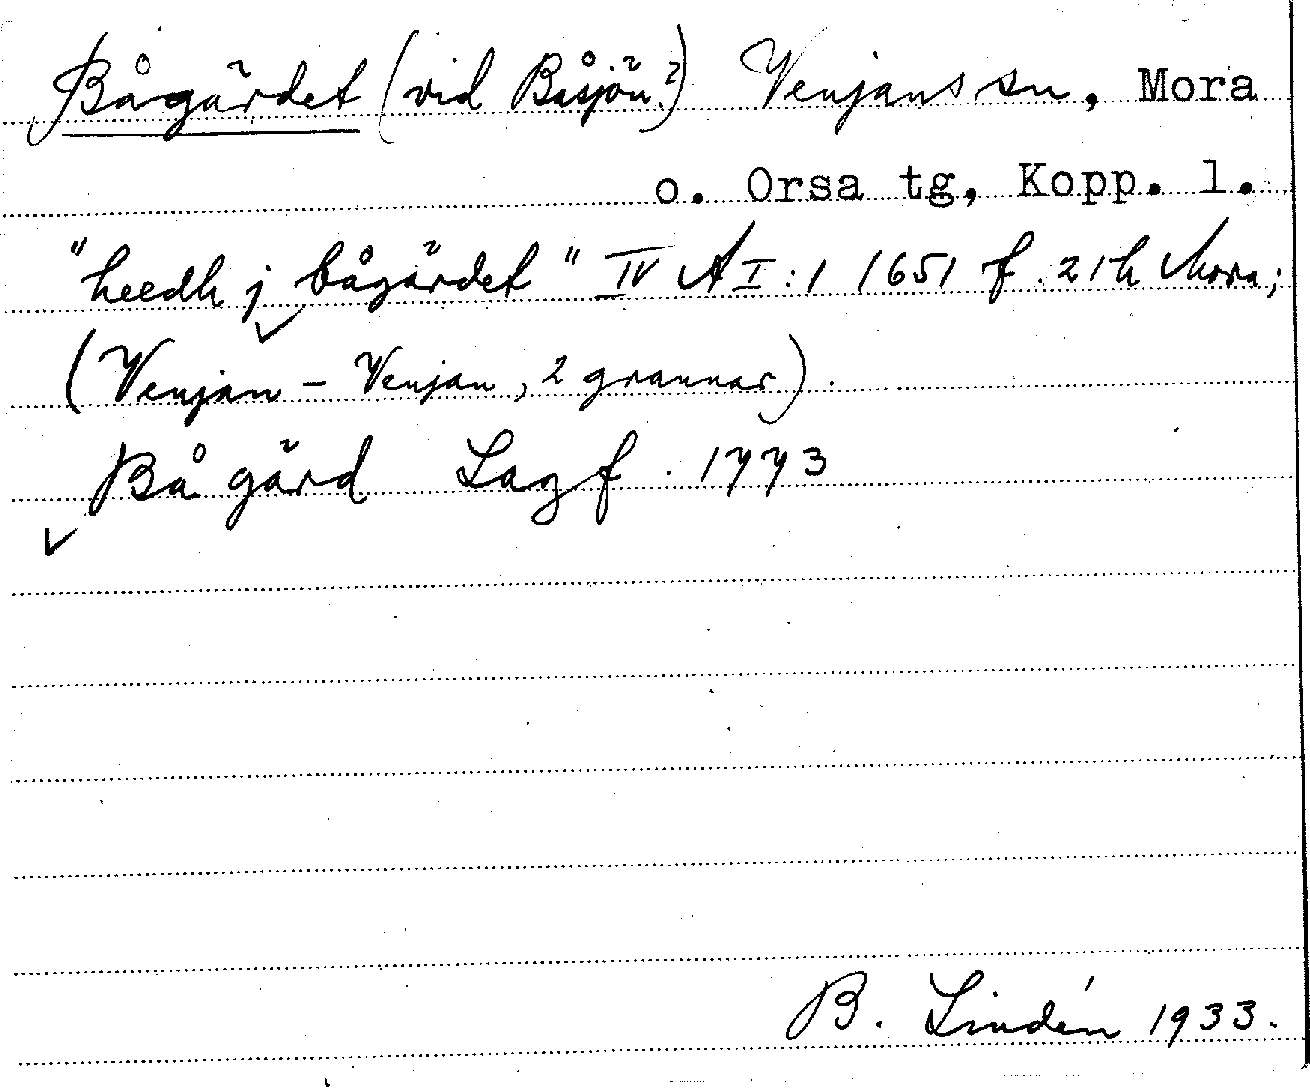 Bågärdet (vid Båsjön?) Venjans sn, Mora
o. Orsa tg, Kopp. l.
"heedh j bågärdet" IV A I:1 1651 f. 21h Mora;
(Venjan – Venjan, 2 grannar).
Bågärd Lagf. 1773
B. Lindén 1933.